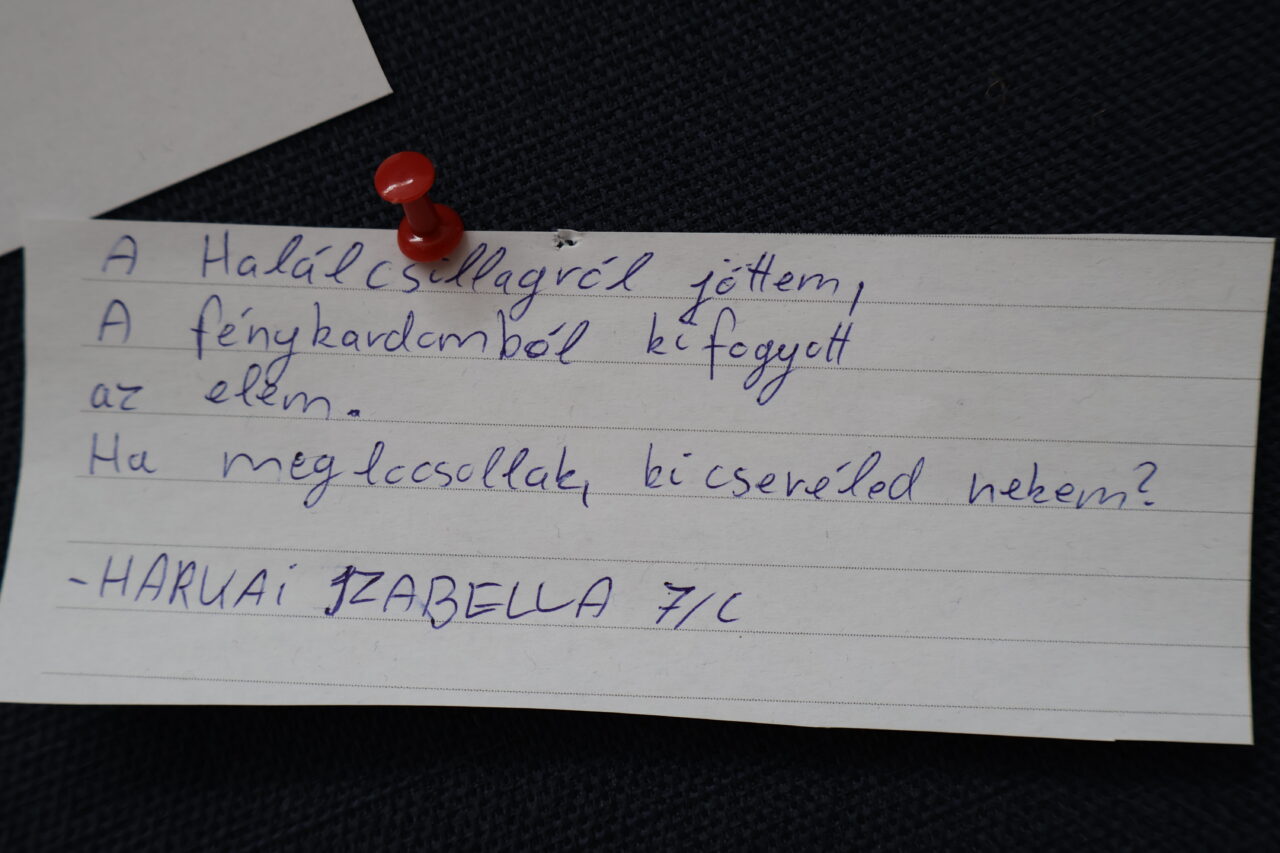 A Halálcsillagról jöttem,
A fénykardomból kifogyott
az elem.
Ha meglocsollak, kicseréled nekem?
-HARVAI IZABELLA 7/C